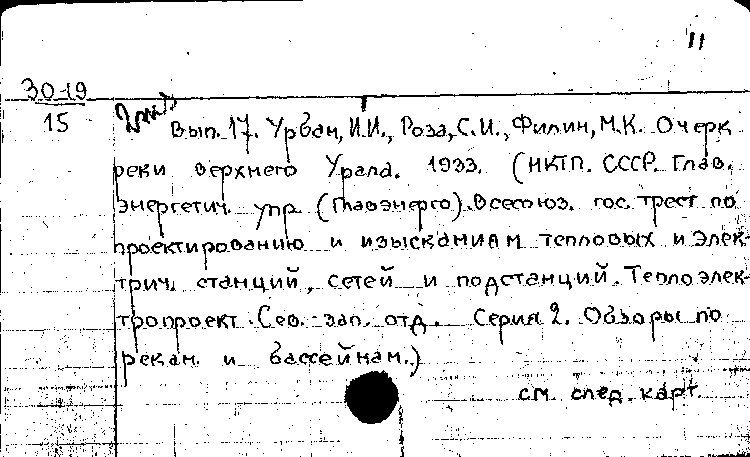 11
30-19
15
Вып. 17. Урбан, И.И., Роза, С.И., Филин, М.К. Очерк
реки верхнего Урала. 1933. (НКТП. СССР. Глав.
энергетич. упр. (Главэнерго). Всесоюз. гос. трест по
проектированию и изысканиям тепловых и элек-
трич. станций, сетей и подстанций. Теплоэлек-
тропроект. Сев.-зап. отд. Серия 2. Обзоры по
рекам и бассейнам.)
см. след. карт.